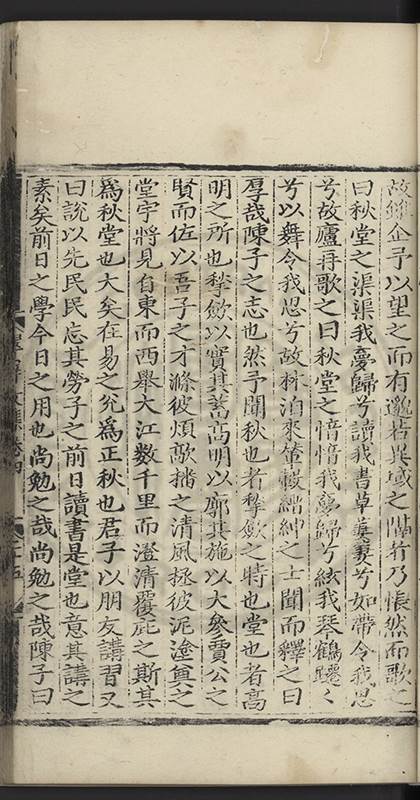 故鄉企予以望之而有邈若異域之隔者乃悵然而歌之
曰秋堂之渠渠我憂歸兮讀我書草萋萋兮如帶令我思
兮故廬再歌之曰秋堂之愔愔我夢歸兮絃我琴鶴躚々
兮以舞令我思兮故林泊來單幄縉紳之士聞而釋之曰
厚哉陳子之志也然予聞秋也者揫歛之時也堂也者高
明之所也揫歛以實其蓄高明以廓其施以大參賈公之
賢而佐以吾子之才滌彼煩歊播之清風拯彼泥塗奠之
堂宇將見自東而西舉大江數千里而澄清覆庇之斯其
為秋堂也大矣在易之兊為正秋也君子以朋友講習又
曰說以先民民忘其勞子之前日讀書是堂也意其講之
素矣前日之學今日之用也尚勉之哉尚勉之哉陳子曰